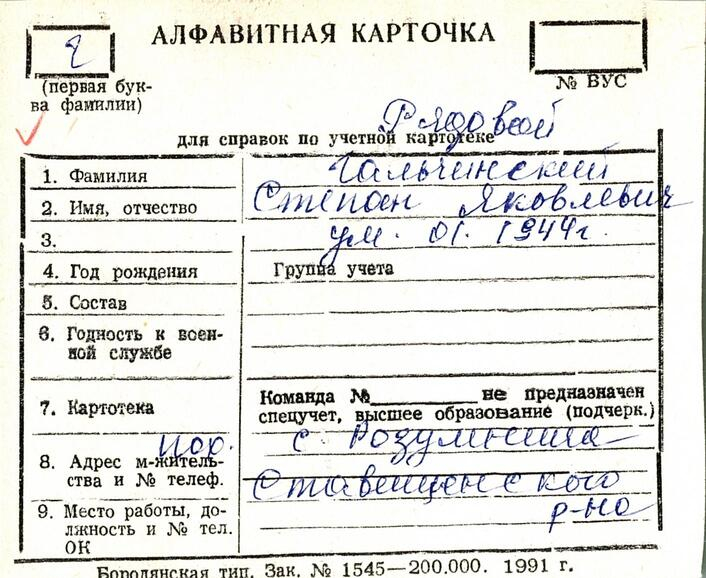 Г
АЛФАВИТНАЯ КАРТОЧКА
(первая бук-
ва фамилии)
№ ВУС
Рядовой
для справок по учетной картотеке
1. Фамилия Гальчинский
2. Имя, отчество Степан Яковлевич
3. ум. 01. 1944г.
4. Год рождения Группа учета
5. Состав
6. Годность к воен-
ной службе
7. Картотека Команда №________ не предназначен
спецучет, высшее образование (подчерк.)
с
8. Адрес м-житель-
ства и № телеф. Ставищенского
р-на
9. Место работы, до-
лжность и № тел.
ОК
Бородянская тип. Зак. № 1545—200.000. 1991 г.